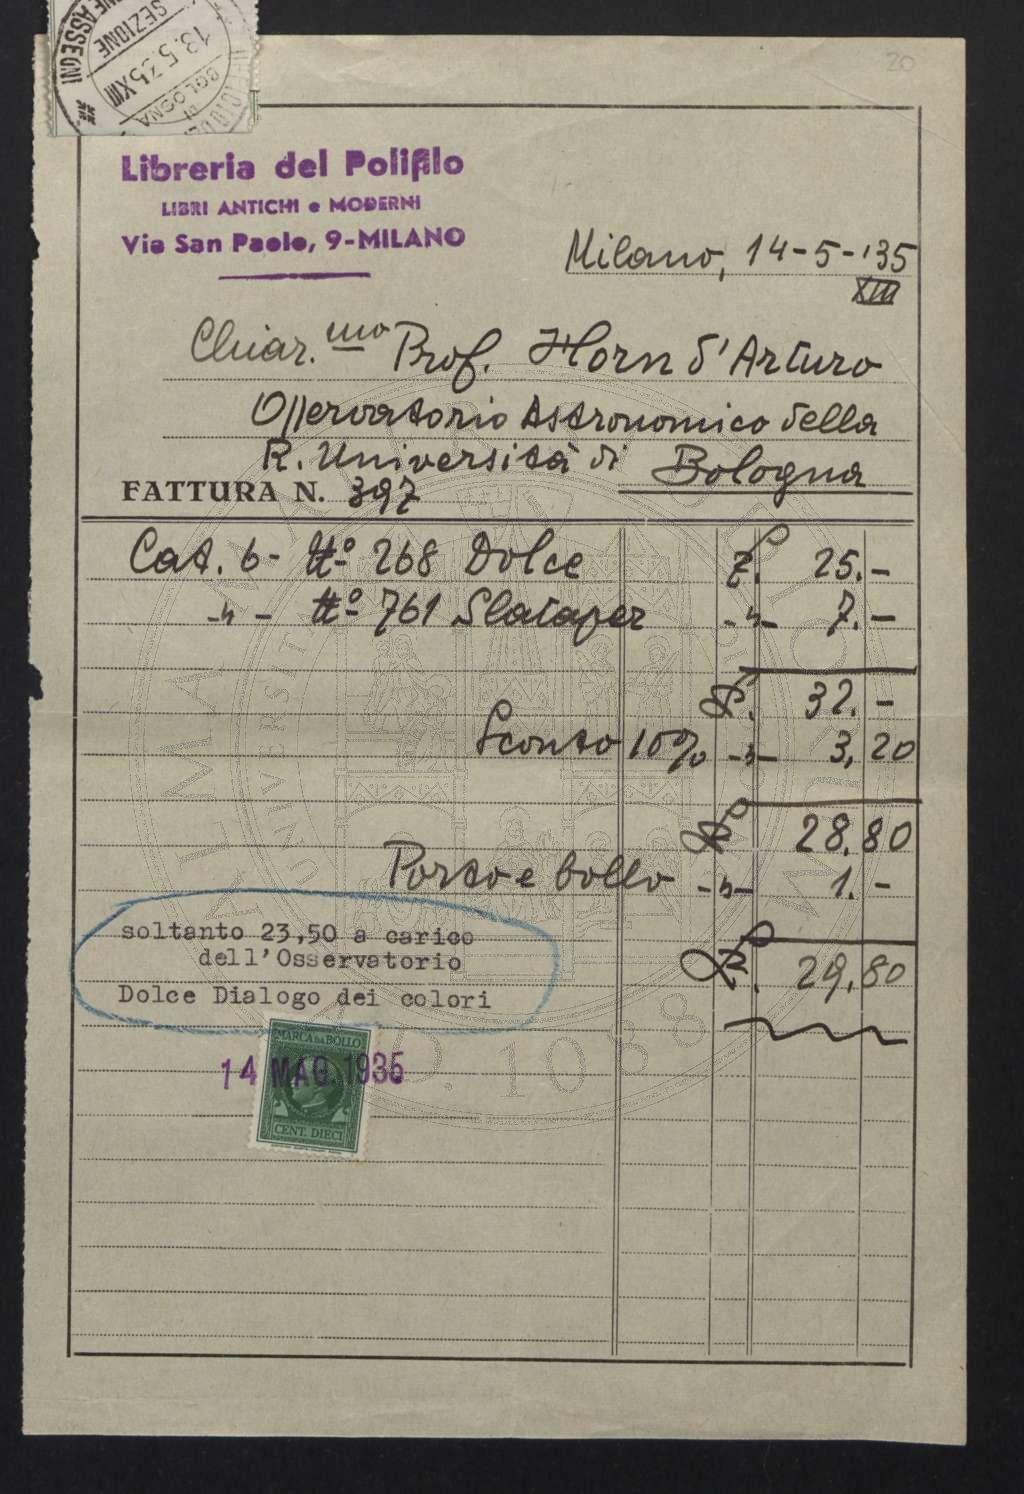 20
SEZIONE
13.5.35 XIII
BOLOGNA
Libreria del Polifilo
LIBRI ANTICHI e MODERNI
Via San Paolo, 9-MILANO
Milano, 14-5-'35
XIII
Chiar.mo Prof. Horn d'Arturo
Osservatorio Astronomico della
R. Università di Bologna
FATTURA N. 397
Cat. 6- No 268 Dolce £. 25.-
-"- No 761 Slataper -"- 7.-
£. 32.-
Sconto 10% -"- 3,20
£ 28,80
Porto e bollo -"- 1.-
£. 29,80
soltanto 23,50 a carico
dell'Osservatorio
Dolce Dialogo dei colori
MARCA DA BOLLO
14 MAG. 1935
CENT. DIECI
ALMA MATER STUDIORUM
A.D. 1088